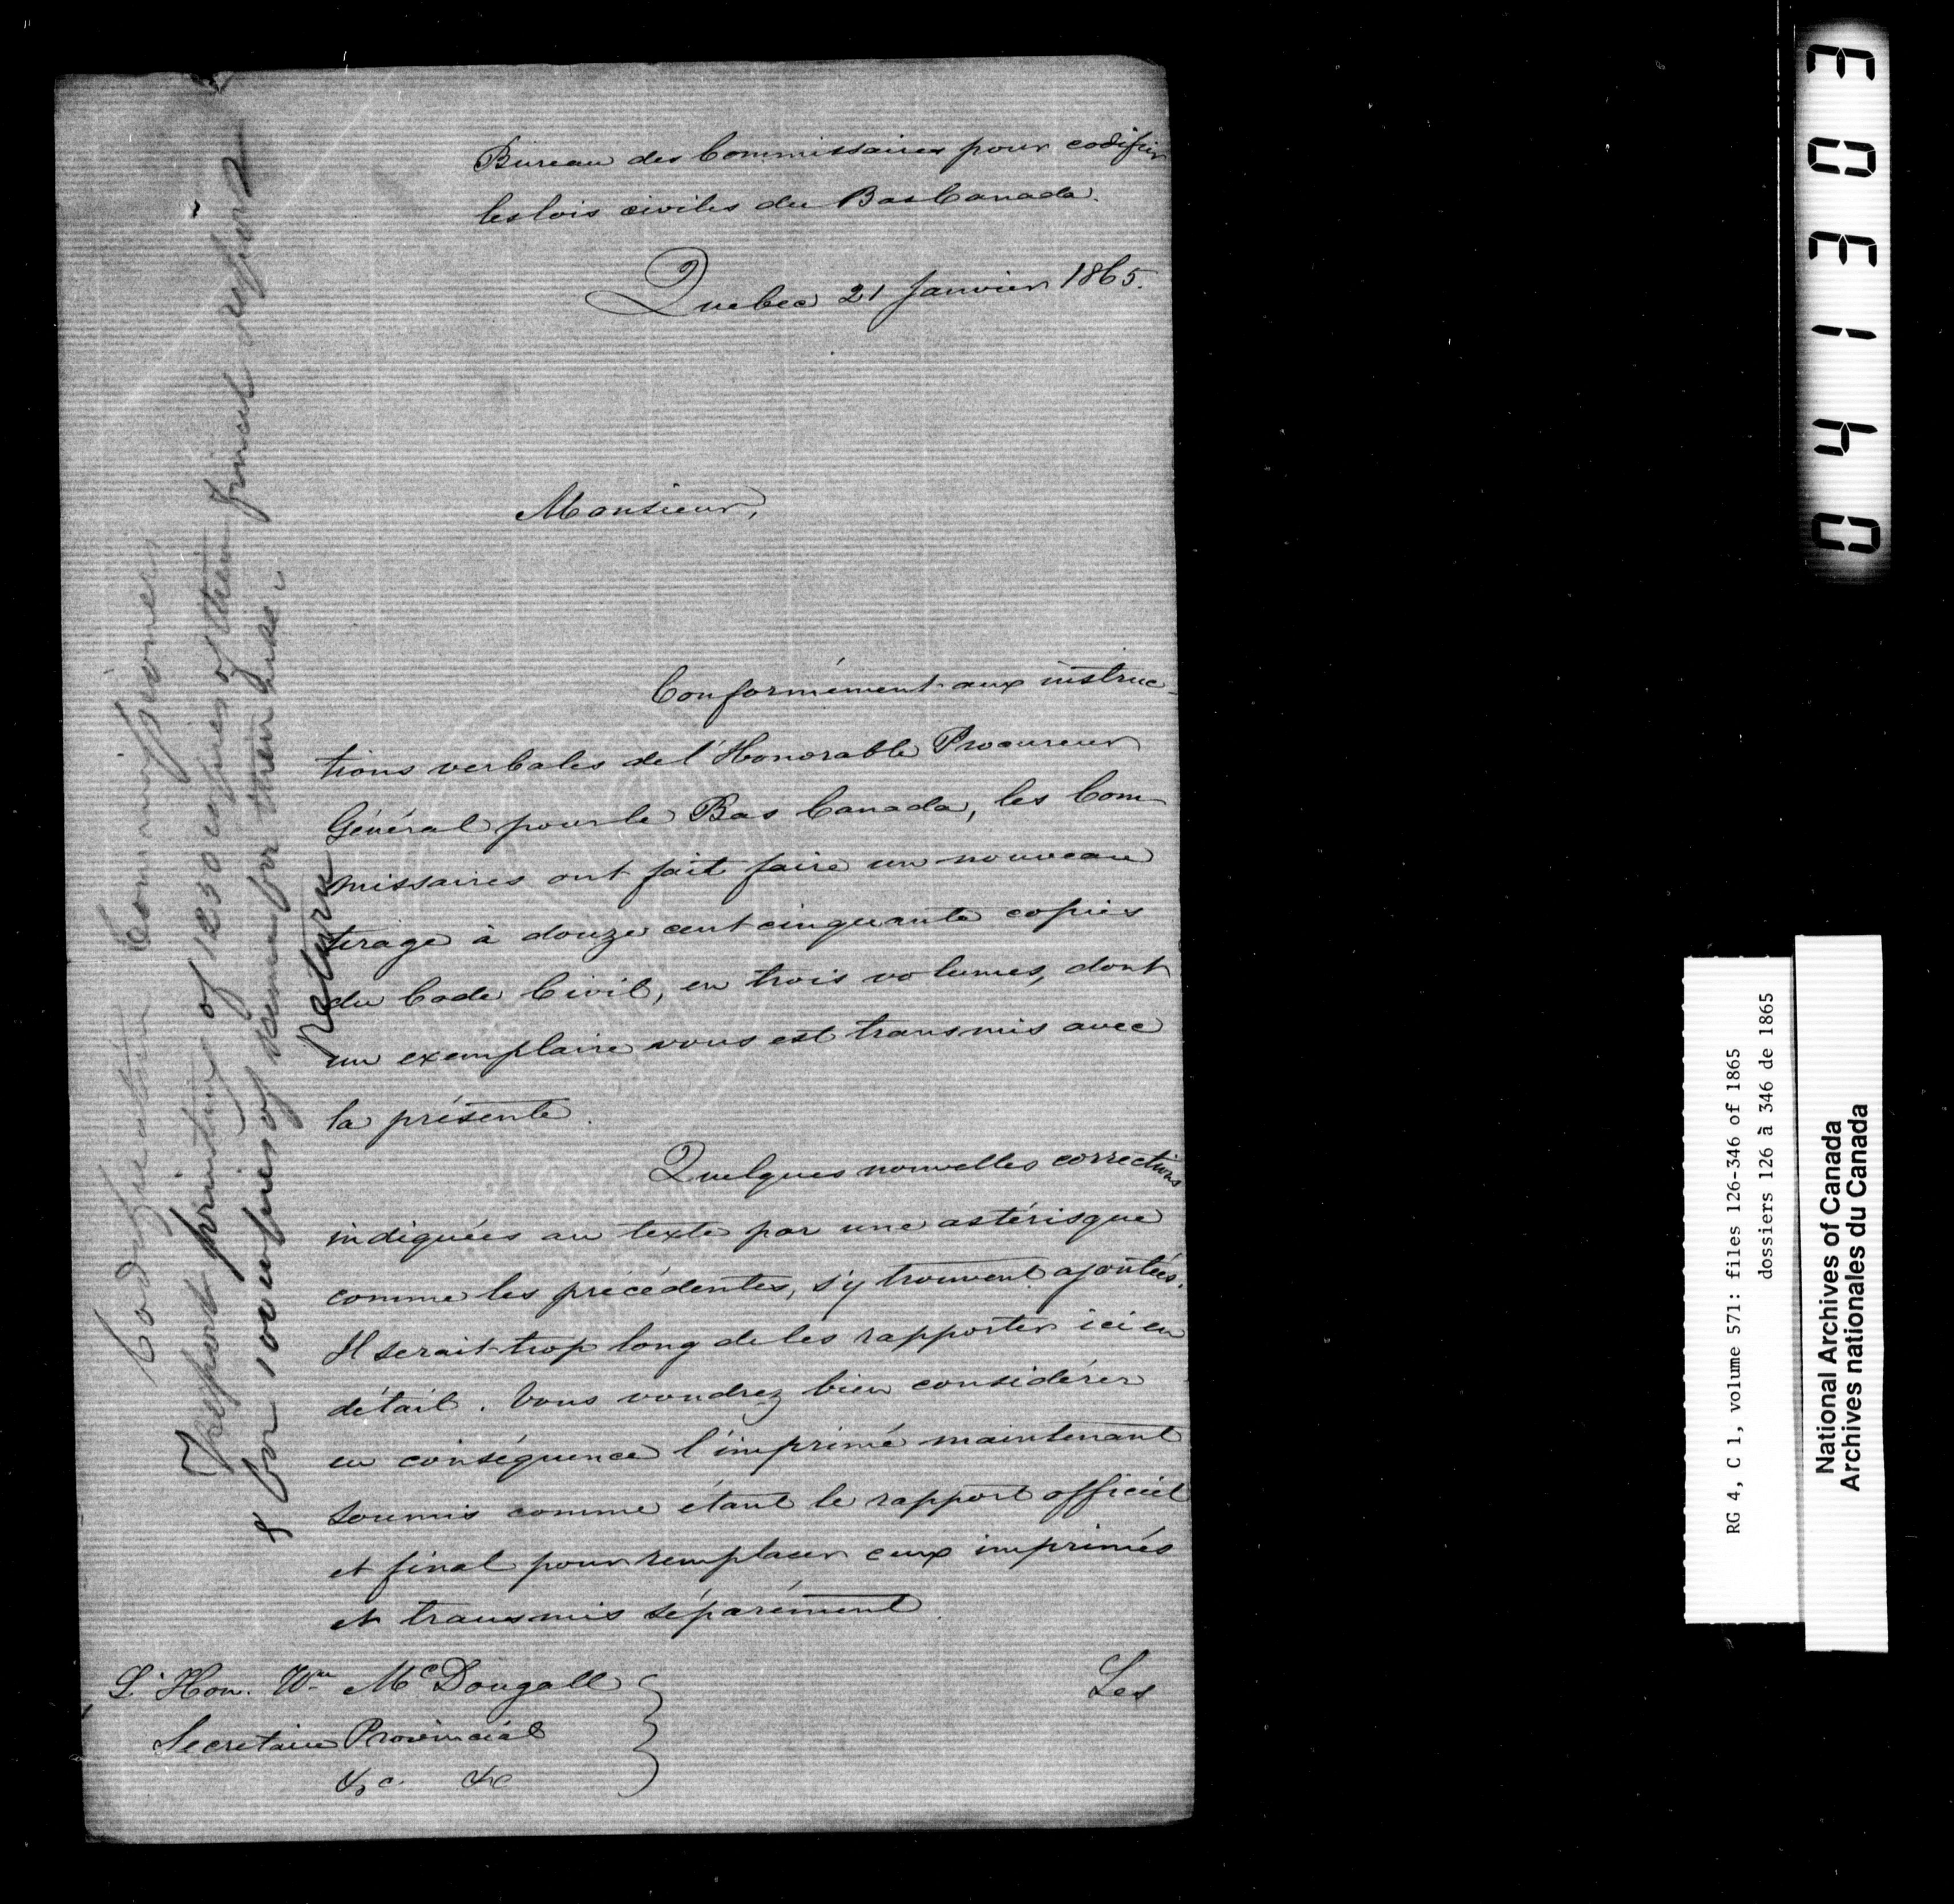 Bureau des Commissaires pour codifier
les lois civiles du Bas Canada.
Quebec 21 Janvier 1865.
Monsieur,
Conformément aux instruc-
tions verbales de l'Honorable Procureur
Général pour le Bas Canada, les Com-
missaires ont fait faire un nouveau
tirage à douze cent cinquante copies
du Code Civil, en trois volumes, dont
un exemplaire vous est transmis avec
la présente.
Quelques nouvelles corrections
indiquées au texte par une astérisque
comme les précédentes, s'y trouvent ajoutées.
Il serait trop long de les rapporter ici en
détail. Vous voudrez bien considérer
en conséquence l'imprimé maintenant
soumis comme étant le rapport officiel
et final pour remplacer ceux imprimés
et transmis séparément.
L'Hon. Wm McDougall
Secretaire Provincial
&c &c
Les
Codification Commissioners
Report printing of 1250 copies of their final report
& for 100 copies of same for their use.
Return
03140
03 
RG 4, C 1, volume 571: files 126-346 of 1865
dossiers 126 à 346 de 1865
National Archives of Canada
Archives nationales du Canada